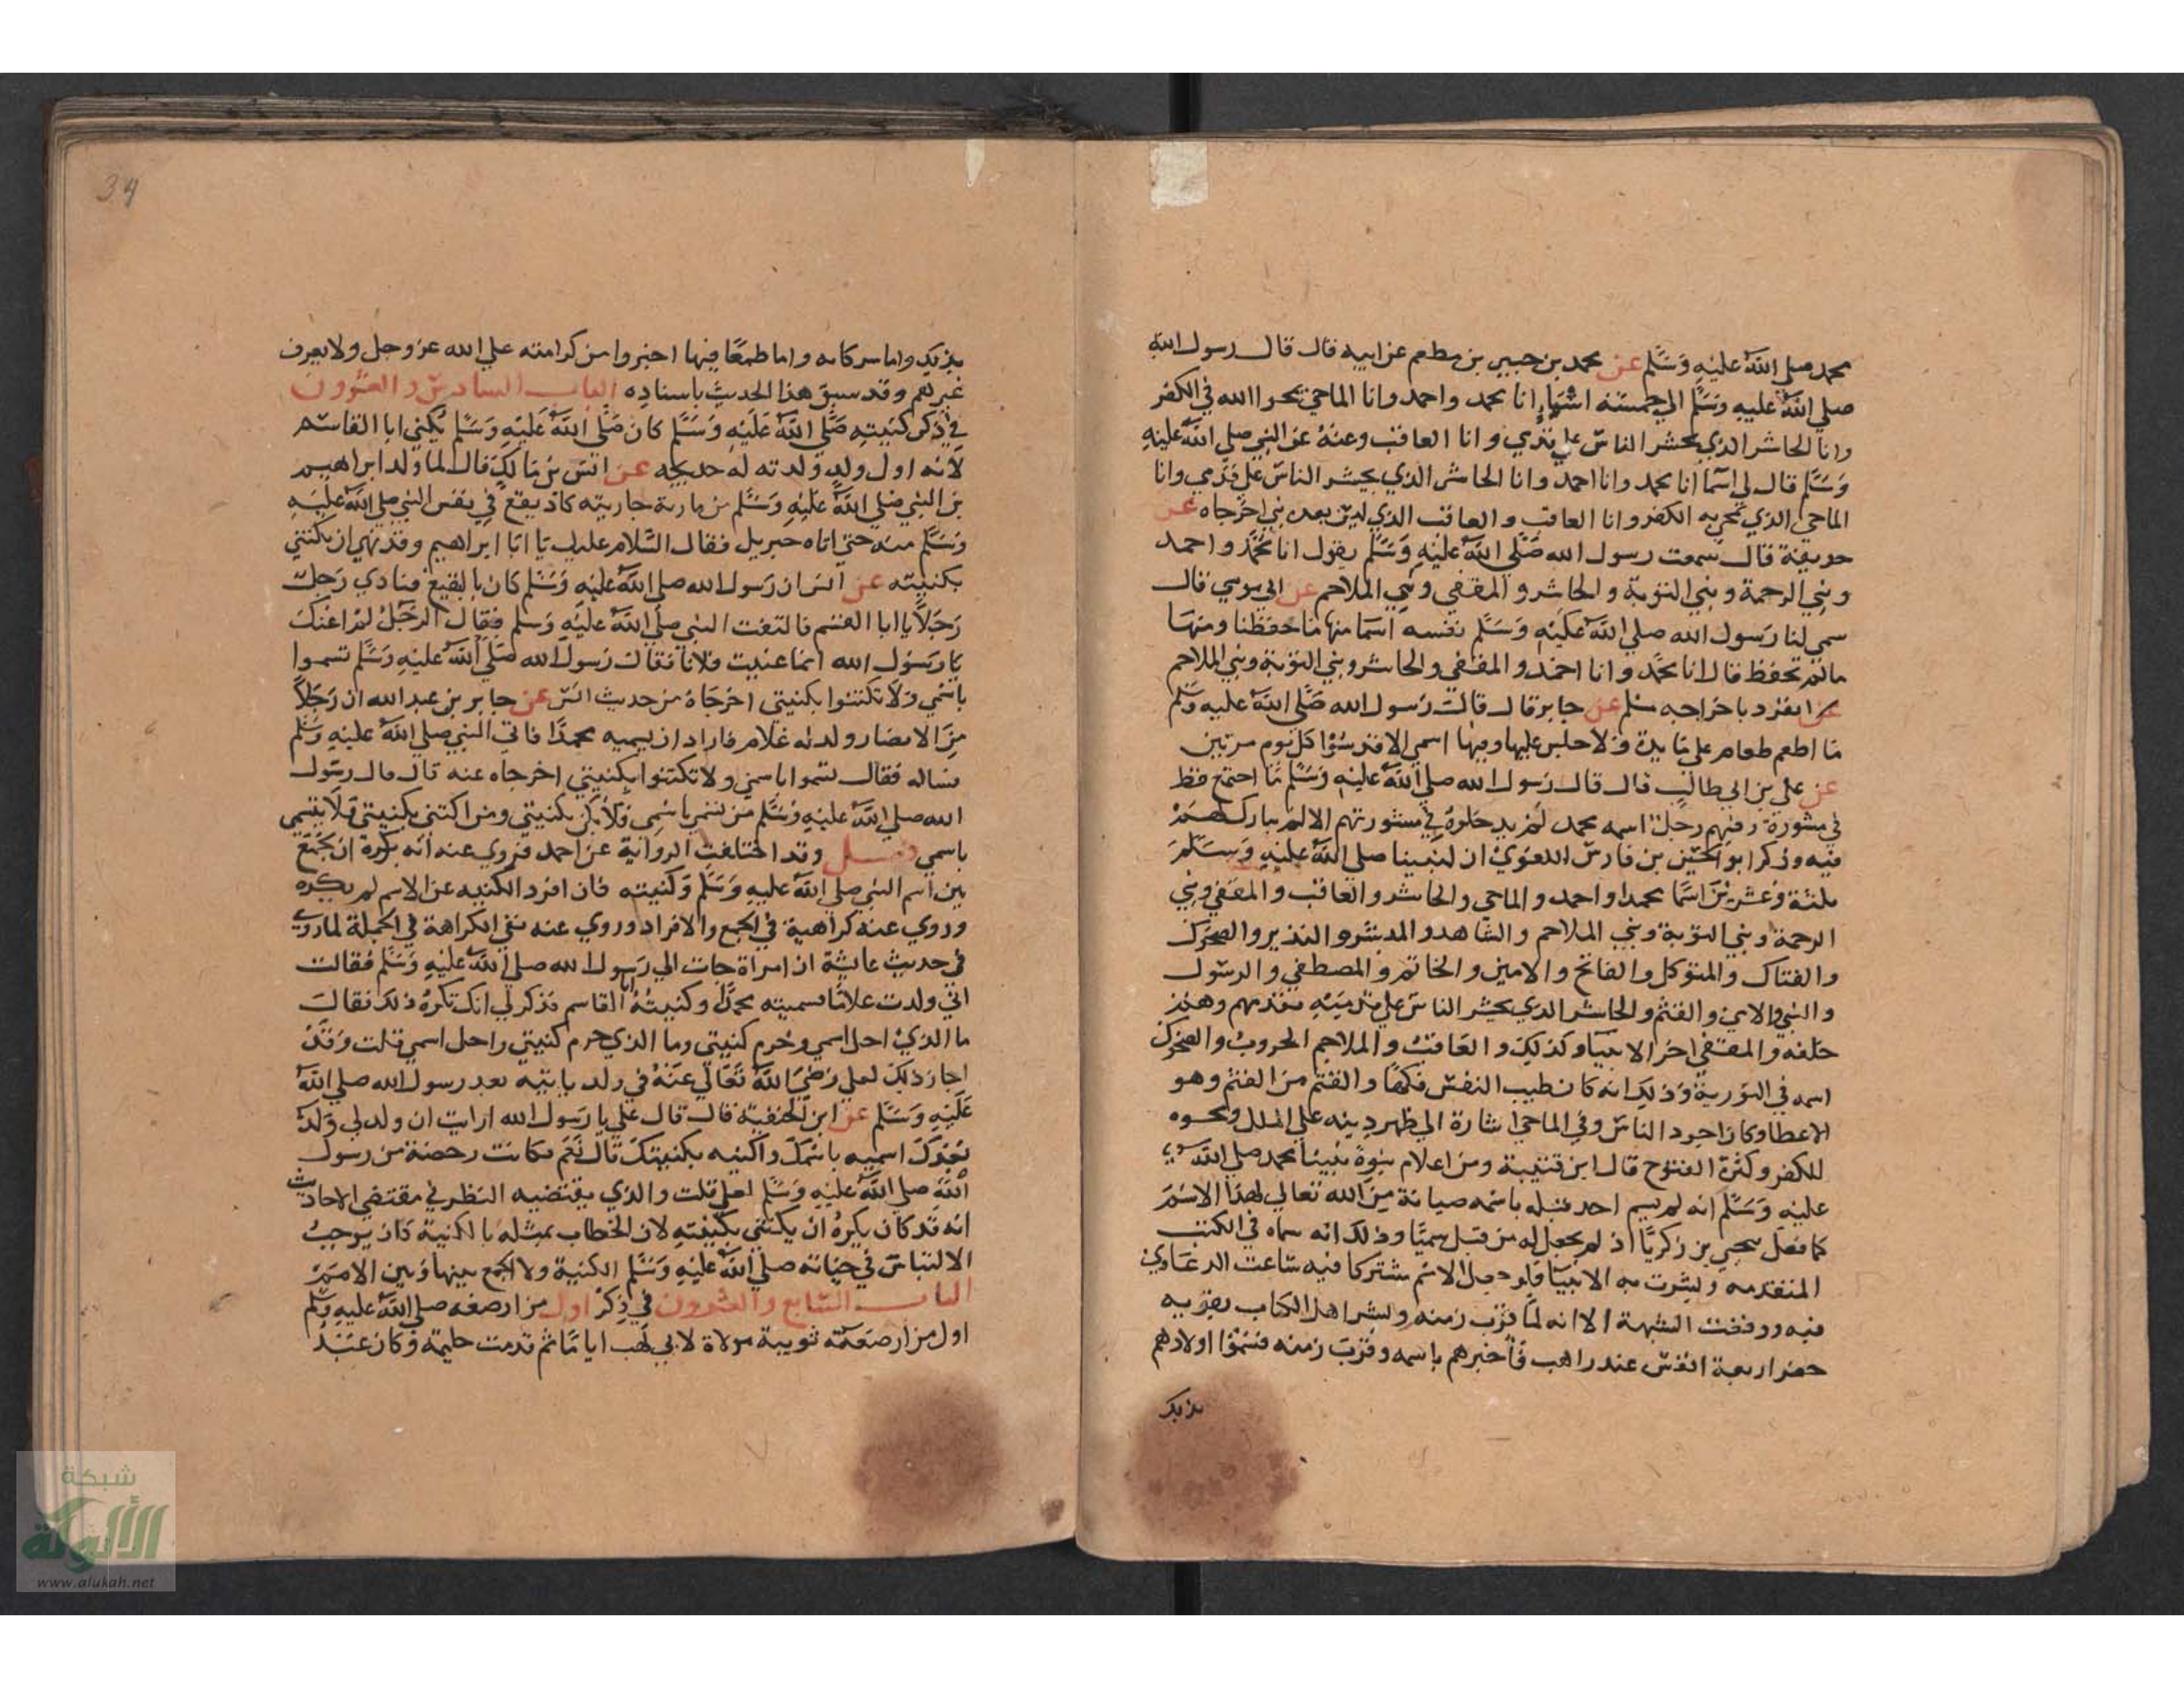 محمد صلي الله عليه وسلم عن محمد بن جبير بن مطعم عن ابيه قال قال رسول الله
صلي الله عليه وسلم الي خمسته اشياء انا محمد واحمد وانا الماحي يمحوا الله في الكفر
وانا الحاشر الذي يحشر الناس علي قدمي وانا العاقب وعنه عن النبي صلي الله عليه
وسلم قال لي اسما انا محمد وانا احمد وانا الحاشر الذي يحشر الناس علي قدمي وانا
الماحي الذي تمحي به الكفر وانا العاقب والعاقب الذي ليس بعده نبي اخرجاه عن
حذيفة قال سمعت رسول الله صلي الله عليه وسلم يقول انا محمد واحمد
ونبي الرحمة ونبي التوبة والحاشر والمقفي ونبي الملاحم عن ابي موسي قال
سمي لنا رسول الله صلي الله عليه وسلم نفسه اسما منها ما حفظنا ومنها
مالم تحفظ قال انا محمد وانا احمد والمقفي والحاشر ونبي التوبة ونبي الملاحم
انفرد باخراجه مسلم عن جابر قال قال رسول الله صلي الله عليه وسلم
ما اطعم طعام علي مايدة ولا جلس عليها وفيها اسمي الا قدسوا كل يوم مرتين
عن علي بن ابي طالب قال قال رسول الله صلي الله عليه وسلم ما اجتمع قط
في مشورة وفيهم رجل اسمه محمد لم يدخلوه في مشورتهم الا لم يبارك لهم
فيه وذكر ابو الحسن بن فارس اللغوي ان لنبينا صلي الله عليه وسلم
ثلثة وعشرين اسما محمدا واحمد والماحي والحاشر والعاقب والمقفي ونبي
الرحمة ونبي التوبة ونبي الملاحم والشاهد والمبشر والنذير والضحوك
والقتاك والمتوكل والفاتح والامين والخاتم والمصطفي والرسول
والنبي والامي والقثم والحاشر الذي يحشر الناس علي قدميه يقدمهم وهم
خلفه والمقفي اخر الانبيا وكذلك والعاقب والملاحم الحروب والضحوك
اسمه في التورية وذلك انه كان طيب النفس فكها والقثم من القثم وهو
الاعطا وكان اجود الناس وفي الماحي اشارة الي ظهر دينه علي الملل ومحوه
للكفر وكثرة الفتوح قال ابن قتيبة ومن اعلام نبوة نبينا محمد صلي الله
عليه وسلم انه لم يسم احد قبله باسمه صيانة من الله تعالي لهذا الاسم
كما فعل بيحيي بن زكريا اذ لم يجعل له من قبل سميا وذلك انه سماه في الكتب
المتقدمه وبشرت به الانبيا فلو جعل الاسم مشتركا فيه شاعت الدعاوي
فيه ووقعت الشبهة الا انه لما قرب زمنه وبشر اهل الكتاب بقربه
حضر اربعة انفس عند راهب فأخبرهم باسمه وقرب زمنه فسموا اولادهم
بذلك
34
بذلك واما شركاه واما طمعا فيها اخبروا من كرامته علي الله عز وجل ولا يعرف
غيرهم وقد سبق هذا الحديث باسناده الباب السادس والعشرون
في ذكر كنيته صلي الله عليه وسلم كان صلي الله عليه وسلم يكني ابا القاسم
لانه اول ولد ولدته له خديجه عن انس بن مالك قال لما ولد ابراهيم
بن النبي صلي الله عليه وسلم من مارية جاريته كاد يقع في نفس النبي صلي الله عليه
وسلم منه حتي اتاه جبريل فقال السلام عليك يا ابا ابراهيم وقد نهي ان يكتني
بكنيته عن انس ان رسول الله صلي الله عليه وسلم كان بالبقيع فنادي رجل
رجلا يا ابا القسم فالتفت النبي صلي الله عليه وسلم فقال الرجل لم اعنك
يا رسول الله انما عنيت فلانا فقال رسول الله صلي الله عليه وسلم تسموا
باسمي ولا تكتنوا بكنيتي اخرجاه من حديث انس عن جابر بن عبد الله ان رجلا
من الانصار ولد له غلام فاراد ان يسميه محمدا فاتي النبي صلي الله عليه وسلم
فساله فقال تسموا باسمي ولا تكتنوا بكنيتي اخرجاه عنه قال قال رسول
الله صلي الله عليه وسلم من تسمي باسمي فلا يكن بكنيتي ومن اكتني بكنيتي فلا يتسمي
باسمي فصل وقد اختلفت الرواية عن احمد فروي عنه أنه يكره ان يجمع
بين اسم النبي صلي الله عليه وسلم وكنيته فان افرد الكنيه عن الاسم لم يكره
وروي عنه كراهية في الجمع والافراد وروي عنه نفي الكراهة في الجملة لما روي
في حديث عايشة ان امراة جات الي رسول الله صلي الله عليه وسلم فقالت
اني ولدت غلاما فسميته محمدا وكنيته ابا القاسم فذكر لي انك تكره ذلك فقال
ما الذي احل اسمي وحرم كنيتي وما الذي حرم كنيتي واحل اسمي قلت وقد
اجاز ذلك لعلي رضي الله تعالي عنه في ولد ياتيه بعد رسول الله صلي الله
عليه وسلم عن ابن الحنفية قال قال علي يا رسول الله ارايت ان ولد لي ولد
بعدك اسميه باسمك واكنيه بكنيتك قال نعم فكانت رخصة من رسول
الله صلي الله عليه وسلم لعلي قلت والذي يقتضيه النظر في مقتضي الاحاديث
انه قد كان يكره ان يكتني بكنيته لان الخطاب بمثله بالكنية كان يوجب
الالتباس في حياته صلي الله عليه وسلم الكنية ولا الجمع بينها وبين الاسم
الباب السابع والعشرون في ذكر اول من ارضعه صلي الله عليه وسلم
اول من ارضعته ثويبة مولاة لابي لهب اياما ثم قدمت حليمة وكان عبد
شبكة
الألوكة
www.alukah.net